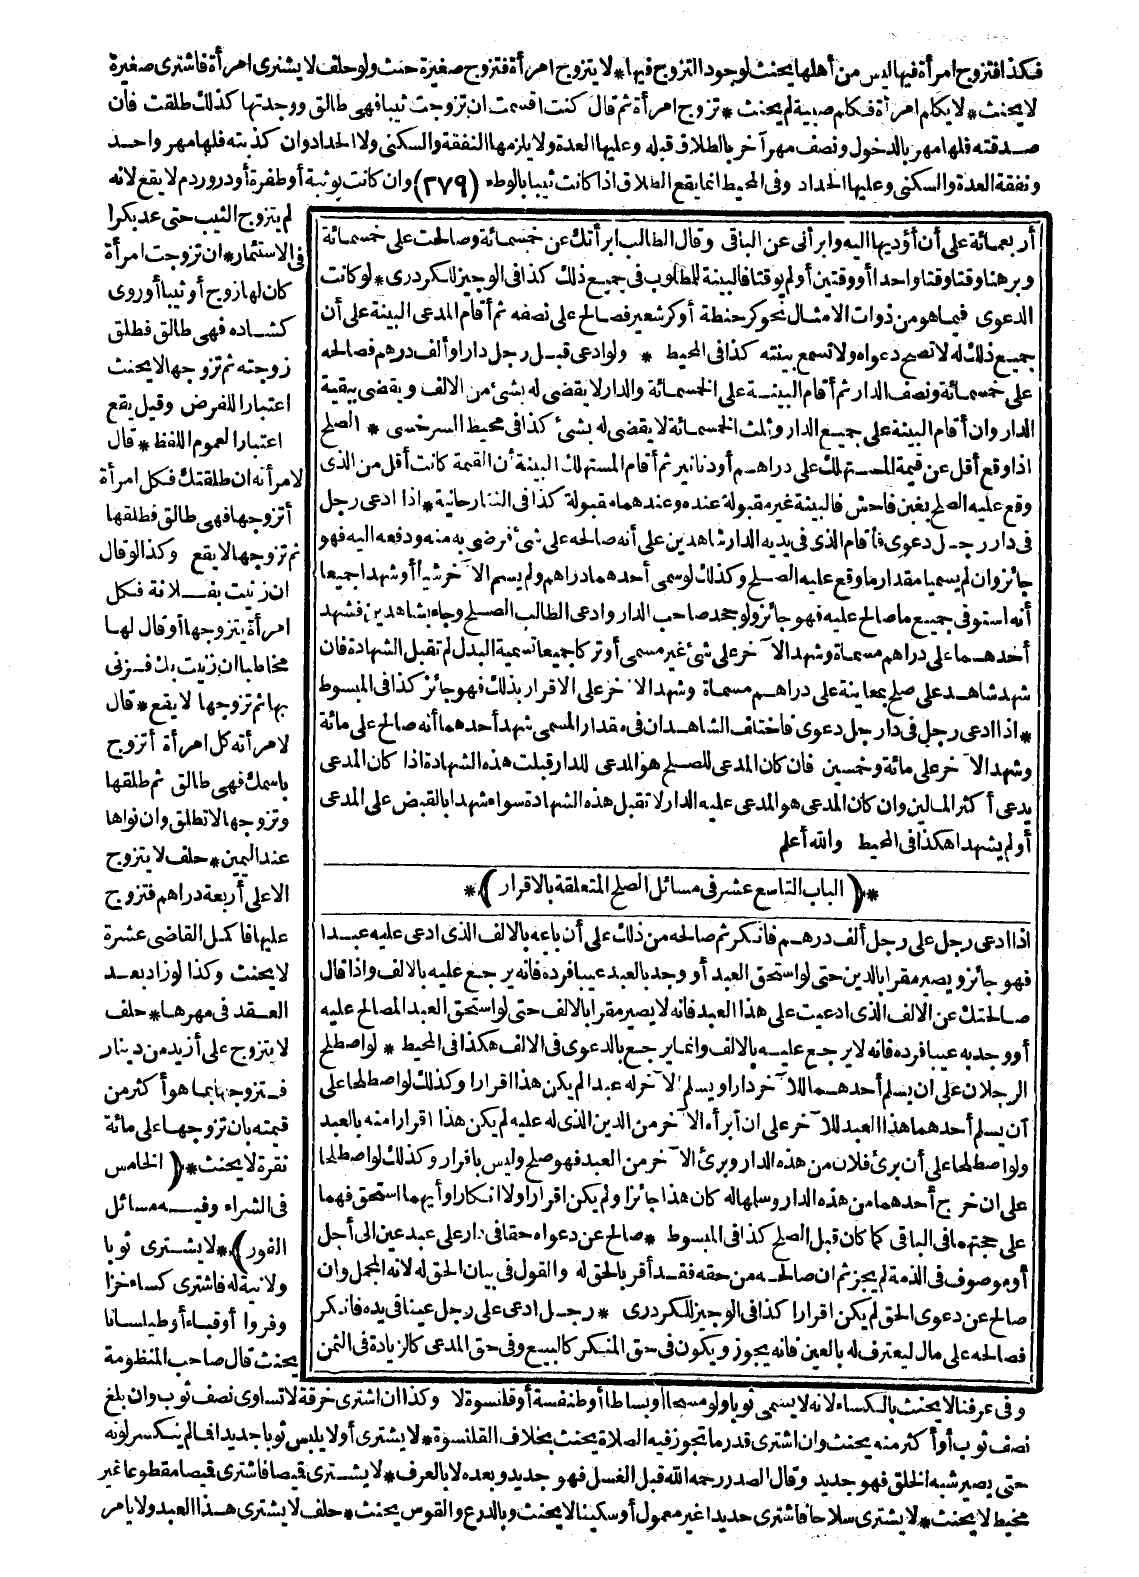 فكذا فتزوج امرأة فيها ليس من أهلها يحنث لوجود التزوج فيها * لا يتزوج امرأة فتزوج صغيرة حنث ولو حلف لا يشترى امرأة فاشترى صغيرة
لا يحنث * لا يكلم امرأة فكلم صبية لم يحنث * تزوج امرأة ثم قال كنت اقسمت ان تزوجت ثيبا فهى طالق ووجدتها كذلك طلقت فان
صدقته فلها مهر بالدخول ونصف مهر آخر بالطلاق قبله وعليها العدة ولا يلزمها النفقة والسكنى ولا الحداد وان كذبته فلها مهر واحد
ونفقة العدة والسكنى وعليها الحداد وفى المحيط انما يقع الطلاق اذا كانت ثيبا بالوطء (٢٧٩) وان كانت بوثبة أو طفرة أو درور دم لا يقع لانه
لم يتزوج الثيب حتى عد بكرا
فى الاستثمار * ان تزوجت امرأة
كان لها زوج أو ثيبا أو روى
كشاده فهى طالق فطلق
زوجته ثم تزوجها لا يحنث
اعتبارا للفرض وقيل يقع
اعتبارا لعموم اللفظ * قال
لامرأته ان طلقتك فكل امرأة
أتزوجها فهى طالق فطلقها
ثم تزوجها لا يقع وكذا لو قال
ان زنيت بفلانة فكل
امرأة يتزوجها أو قال لها
مخاطبا ان زنيت بك فزنى
بها ثم تزوجها لا يقع * قال
لامرأته كل امرأة أتزوج
باسمك فهى طالق ثم طلقها
وتزوجها لا تطلق وان نواها
عند اليمين * حلف لا يتزوج
الا على أربعة دراهم فتزوج
عليها فاكمل القاضى عشرة
لا يحنث وكذا لو زاد بعد
العقد فى مهرها * حلف
لا يتزوج على أزيد من دينار
فتزوجها بما هو أكثر من
قيمته بان تزوجها على مائة
نقرة لا يحنث * (الخامس
فى الشراء وفيه مسائل
الفور) * لا يشترى ثوبا
ولا نية له فاشترى كساء خزا
وفروا أو قباء أو طيلسانا
يحنث قال صاحب المنظومة
أربعمائة على أن أؤديها اليه وابرأنى عن الباقى وقال الطالب ابرأتك عن خمسمائة وصالحت على خمسمائة
وبرهنا وقتا وقتا واحدا أو وقتين أو لم يوقتا فالبينة للمطلوب فى جميع ذلك كذا فى الوجيز للكردرى * لو كانت
الدعوى فيما هو من ذوات الامثال نحو كر حنطة أو كر شعير فصالح على نصفه ثم أقام المدعى البينة على أن
جميع ذلك له لا تصح دعواه ولا تسمع بينته كذا فى المحيط * ولو ادعى قبل رجل دارا وألف درهم فصالحه
على خمسمائة ونصف الدار ثم أقام البينة على الخمسمائة والدار لا يقضى له بشئ من الالف ويقضى ببقية
الدار وان أقام البينة على جميع الدار وثلث الخمسمائة لا يقضى له بشئ كذا فى محيط السرخسى * الصلح
اذا وقع أقل عن قيمة المستهلك على دراهم أو دنانير ثم أقام المستهلك البينة أن القيمة كانت أقل من الذى
وقع عليه الصلح بغبن فاحش فالبينة غير مقبولة عنده وعندهما مقبولة كذا فى التتارخانية * اذا ادعى رجل
فى دار رجل دعوى فأقام الذى فى يديه الدار شاهدين على أنه صالحه على شئ فرضى به منه ودفعه اليه فهو
جائز وان لم يسميا مقدار ما وقع عليه الصلح وكذلك لو سمى أحدهما دراهم ولم يسم الآخر شيأ أو شهدا جميعا
أنه استوفى جميع ما صالح عليه فهو جائز ولو جحد صاحب الدار وادعى الطالب الصلح وجاء بشاهدين فشهد
أحدهما على دراهم مسماة وشهد الآخر على شئ غير مسمى أو تركا جميعا تسمية البدل لم تقبل الشهادة فان
شهد شاهد على صلح بمعاينة على دراهم مسماة وشهد الآخر على الاقرار بذلك فهو جائز كذا فى المبسوط
* اذا ادعى رجل فى دار رجل دعوى فاختلف الشاهدان فى مقدار المسمى شهد أحدهما أنه صالح على مائة
وشهد الآخر على مائة وخمسين فان كان المدعى للصلح هو المدعى للدار قبلت هذه الشهادة اذا كان المدعى
يدعى أكثر المالين وان كان المدعى هو المدعى عليه الدار لا تقبل هذه الشهادة سواء شهدا بالقبض على المدعى
أو لم يشهدا هكذا فى المحيط والله أعلم
* (الباب التاسع عشر فى مسائل الصلح المتعلقة بالاقرار) *
اذا ادعى رجل على رجل ألف درهم فانكر ثم صالحه من ذلك على أن باعه بالالف الذى ادعى عليه عبدا
فهو جائز ويصير مقرا بالدين حتى لو استحق العبد أو وجد بالعبد عيبا فرده فانه يرجع عليه بالالف واذا قال
صالحتك عن الالف الذى ادعيت على هذا العبد فانه لا يصير مقرا بالالف حتى لو استحق العبد المصالح عليه
أو وجد به عيبا فرده فانه لا يرجع عليه بالالف وانما يرجع بالدعوى فى الالف هكذا فى المحيط * لو اصطلح
الرجلان على ان يسلم أحدهما للآخر دارا ويسلم الآخر له عبدا لم يكن هذا اقرارا وكذلك لو اصطلحا على
أن يسلم أحدهما هذا العبد للآخر على ان أبرأه الآخر من الدين الذى له عليه لم يكن هذا اقرارا منه بالعبد
ولو اصطلحا على أن برئ فلان من هذه الدار وبرئ الآخر من العبد فهو صلح وليس باقرار وكذلك لو اصطلحا
على ان خرج أحدهما من هذه الدار وسلمها له كان هذا جائزا ولم يكن اقرارا ولا انكارا وأيهما استحق فهما
على حجتهما فى الباقى كما كان قبل الصلح كذا فى المبسوط * صالح عن دعواه حقا فى دار على عبد عين الى أجل
أو موصوف فى الذمة لم يجز ثم ان صالحه من حقه فقد أقر بالحق له والقول فى بيان الحق له لانه المجمل وان
صالح عن دعوى الحق لم يكن اقرارا كذا فى الوجيز للكردرى * رجل ادعى على رجل عينا فى يده فانكر
فصالحه على مال ليعترف له بالعين فانه يجوز ويكون فى حق المنكر كالبيع وفى حق المدعى كالزيادة فى الثمن
وفى عرفنا لا يحنث بالكساء لانه لا يسمى ثوبا ولو مسحا أو بساطا أو طنفسة أو قلنسوة لا وكذا ان اشترى خرقة لا تساوى نصف ثوب وان بلغ
نصف ثوب أو أكثر منه يحنث وان اشترى قدر ما تجوز فيه الصلاة يحنث بخلاف القلنسوة * لا يشترى أو لا يلبس ثوبا جديدا فما لم ينكسر لونه
حتى يصير شبه الخلق فهو جديد وقال الصدر رحمه الله قبل الغسل فهو جديد وبعده لا بالعرف * لا يشترى قميصا فاشترى قميصا مقطوعا غير
مخيط لا يحنث * لا يشترى سلاحا فاشترى حديدا غير معمول أو سكينا لا يحنث وبالدرع والقوس يحنث * حلف لا يشترى هذا العبد ولا يامر